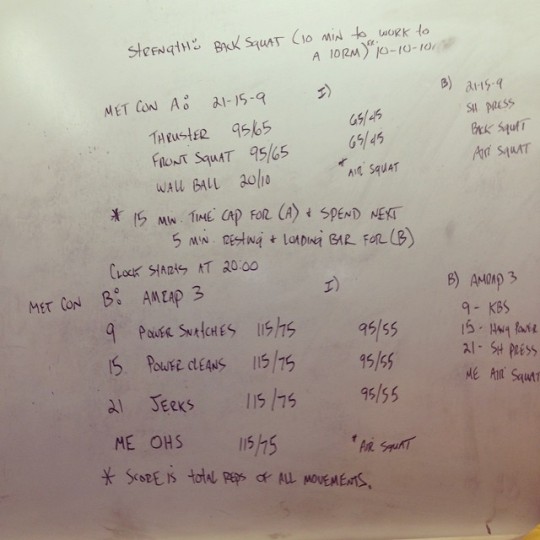 STRENGTH: BACK SQUAT (10 MIN to WORK to
A 10RM) ** 10-10-10
MET CON A: 21-15-9 I) B) 21-15-9
THRUSTER 95/65 65/45 SH PRESS
FRONT SQUAT 95/65 65/45 BACK SQUAT
WALL BALL 20/10 * AIR SQUAT AIR SQUAT
* 15 MIN. TIME CAP FOR (A) + SPEND NEXT
5 MIN. RESTING + LOADING BAR FOR (B)
CLOCK STARTS AT 20:00
MET CON B: AMRAP 3 I) B) AMRAP 3
9 POWER SNATCHES 115/75 95/55 9 - KBS
15 POWER CLEANS 115/75 95/55 15 - HANG POWER
21 JERKS 115/75 95/55 21 - SH PRESS
ME OHS 115/75 * AIR SQUAT ME AIR SQUAT
* SCORE IS total REPS OF ALL MOVEMENTS.